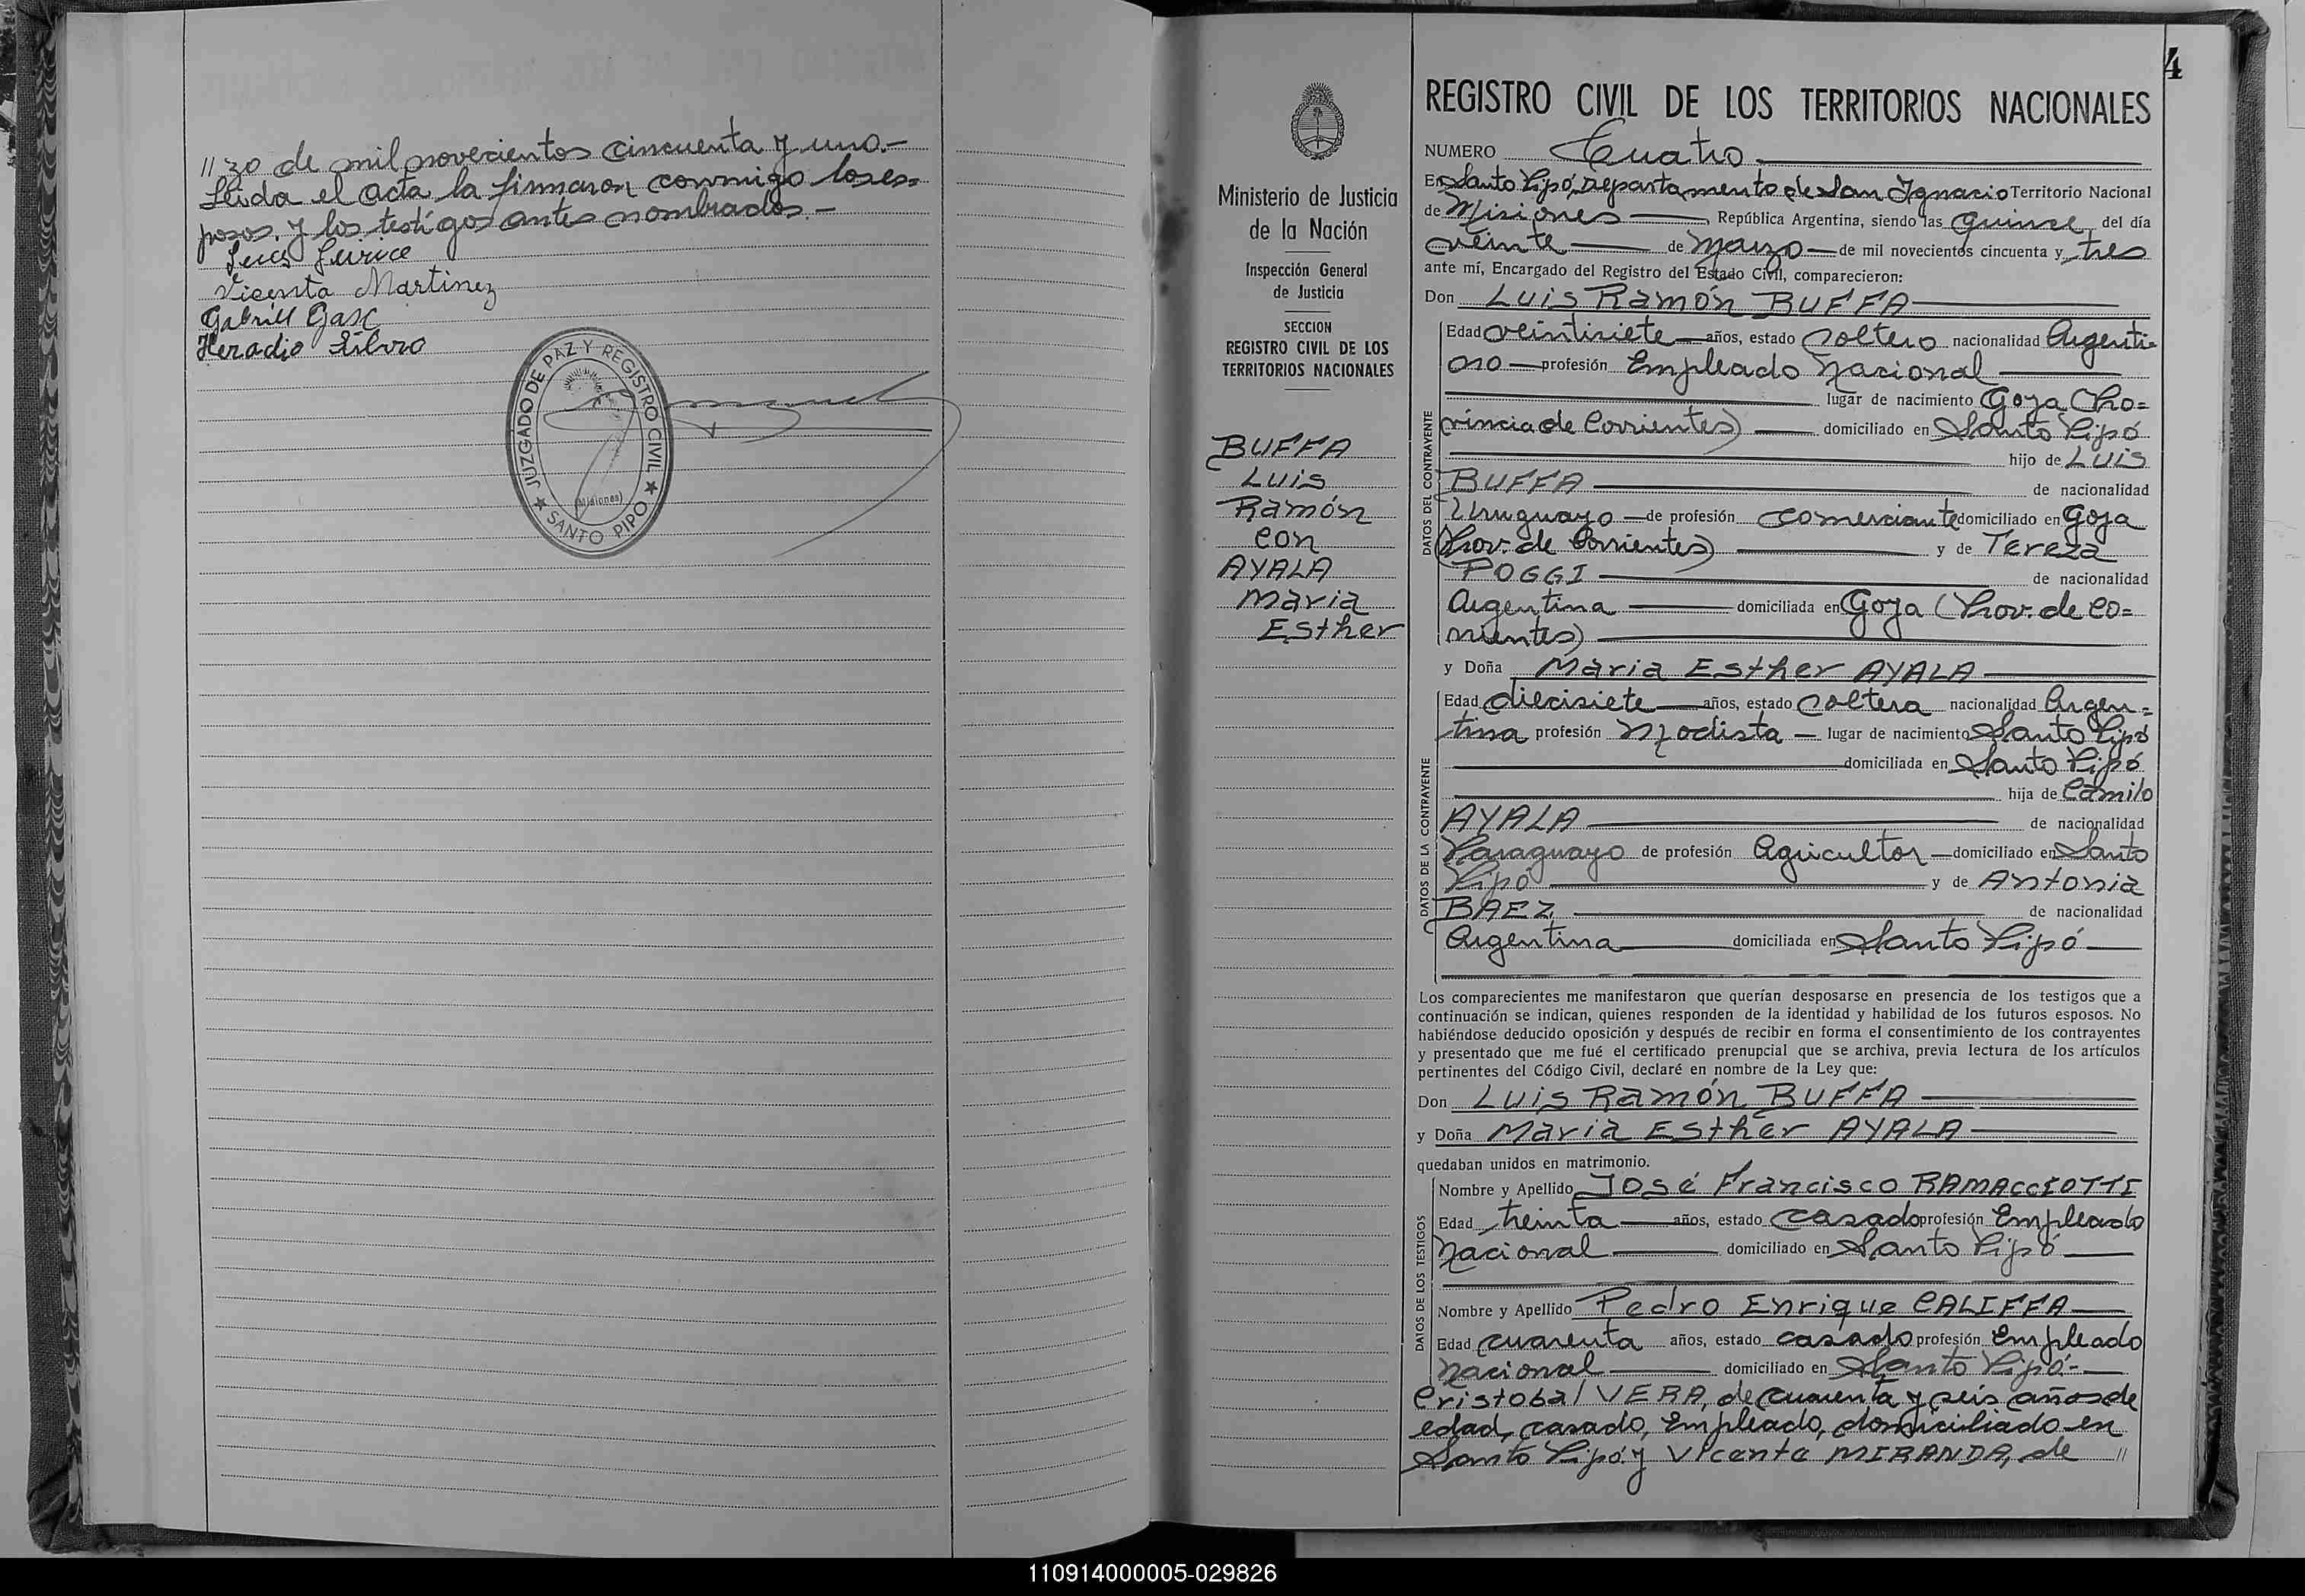 // zo de mil novecientos cincuenta y uno.-
Leida el acta la firmaron conmigo los es=
posos y los testigos antes nombrados.-
Vicenta Martinez
Gabriel Gasc
JUZGADO DE PAZ Y REGISTRO CIVIL
(Misiones)
SANTO PIPO
4
Ministerio de Justicia
de la Nación
Inspección General
de Justicia
SECCION
REGISTRO CIVIL DE LOS
TERRITORIOS NACIONALES
BUFFA
Luis
Ramón
con
AYALA
Maria
Esther
REGISTRO CIVIL DE LOS TERRITORIOS NACIONALES
NUMERO Cuatro
En Santo Pipó, Departamento de San Ignacio Territorio Nacional
de Misiones, República Argentina, siendo las quince del día
veinte de Marzo de mil novecientos cincuenta y tres
ante mí, Encargado del Registro del Estado Civil, comparecieron:
Don Luis Ramón BUFFA
DATOS DEL CONTRAYENTE
Edad veintisiete años, estado soltero nacionalidad Argenti=
no profesión Empleado Nacional
lugar de nacimiento Goya (Pro=
vincia de Corrientes) domiciliado en Santo Pipó
hijo de Luis
BUFFA de nacionalidad
Uruguayo de profesión comerciante domiciliado en Goya
(Prov. de Corrientes) y de Tereza
POGGI de nacionalidad
Argentina domiciliada en Goya (Prov. de Co=
rrientes)
y Doña Maria Esther AYALA
DATOS DE LA CONTRAYENTE
Edad diecisiete años, estado soltera nacionalidad Argen=
tina profesión Modista lugar de nacimiento Santo Pipó
domiciliada en Santo Pipó
hija de Camilo
AYALA de nacionalidad
Paraguayo de profesión Agricultor domiciliado en Santo
Pipó y de Antonia
BAEZ de nacionalidad
Argentina domiciliada en Santo Pipó
Los comparecientes me manifestaron que querían desposarse en presencia de los testigos que a
continuación se indican, quienes responden de la identidad y habilidad de los futuros esposos. No
habiéndose deducido oposición y después de recibir en forma el consentimiento de los contrayentes
y presentado que me fué el certificado prenupcial que se archiva, previa lectura de los artículos
pertinentes del Código Civil, declaré en nombre de la Ley que:
Don Luis Ramón BUFFA
y Doña Maria Esther AYALA
quedaban unidos en matrimonio.
DATOS DE LOS TESTIGOS
Nombre y Apellido José Francisco RAMACCIOTTI
Edad treinta años, estado casado profesión Empleado
Nacional domiciliado en Santo Pipó
Nombre y Apellido Pedro Enrique CALIFFA
Edad cuarenta años, estado casado profesión Empleado
Nacional domiciliado en Santo Pipó.-
Cristobal VERA, de cuarenta y seis años de
edad, casado, Empleado, domiciliado en
Santo Pipó y Vicente MIRANDA, de //
110914000005-029826